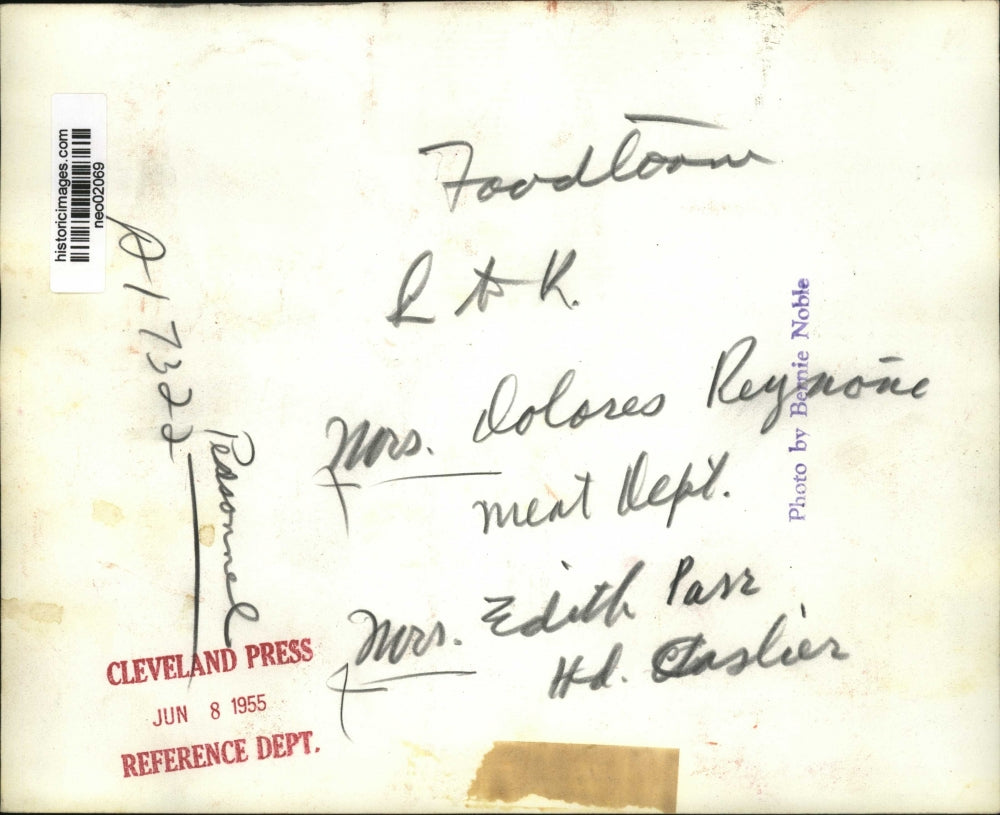 Foodtown
L to R.
Mrs. Dolores Reymone
Meat Dept.
Mrs. Edith Parr
Hd. Cashier
A1 7322
Personnel
historicimages.com
neo02069
Photo by Bernie Noble
CLEVELAND PRESS
JUN 8 1955
REFERENCE DEPT.